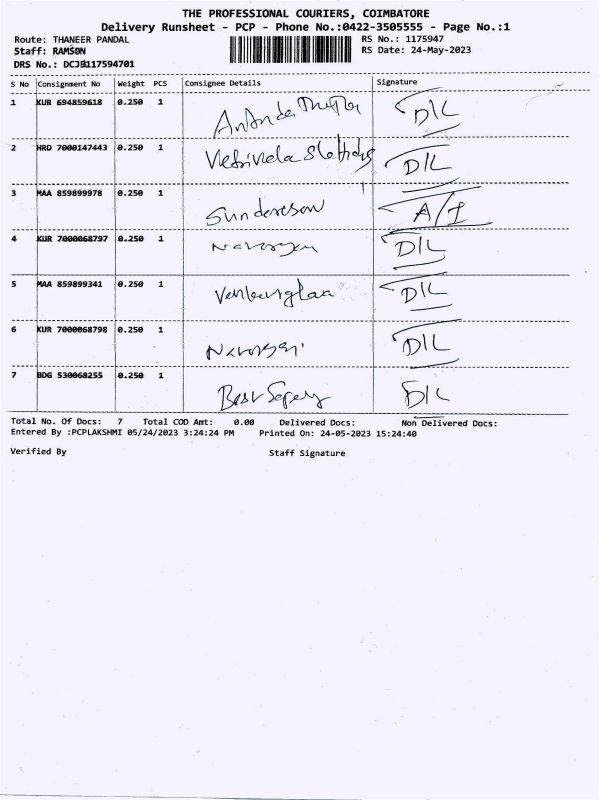 THE PROFESSIONAL COURIERS, COIMBATORE
Delivery Runsheet - PCP - Phone No.:0422-3505555 - Page No.:1
Route: THANEER PANDAL RS No.: 1175947
Staff: RAMSON RS Date: 24-May-2023
DRS No.: DCJB117594701
S No Consignment No Weight PCS Consignee Details Signature
1 KUR 694859618 0.250 1 D/L
2 HRD 7000147443 0.250 1 D/L
3 MAA 859899978 0.250 1 Sundareson A/I
4 KUR 7000068797 0.250 1 D/L
5 MAA 859899341 0.250 1 D/L
6 KUR 7000068798 0.250 1 D/L
7 BDG 530068255 0.250 1 Best D/L
Total No. Of Docs: 7 Total COD Amt: 0.00 Delivered Docs: Non Delivered Docs:
Entered By :PCPLAKSHMI 05/24/2023 3:24:24 PM Printed On: 24-05-2023 15:24:40
Verified By Staff Signature